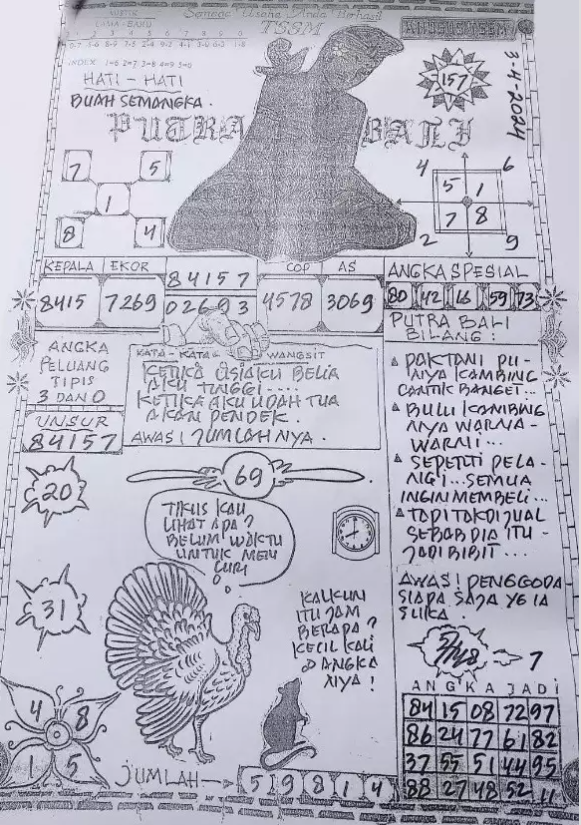 Semoga Usaha Anda Berhasil
TSSM
LAMA - BARU
1 2 3 4 5 6 7 8 9 0
INDEX 1=6 2=7 3=8 4=9 5=0
HATI - HATI
BUAH SEMANGKA.
157
3-4-2024
PUTRA BALI
7 5
1
8 4
4 6
5 1
7 8
2 9
KEPALA EKOR
8415 7269
84157
02693
COP AS
4578 3069
ANGKA SPESIAL
80 42 16 59 73
PUTRA BALI
BILANG :
PAKTANI PU-
NYA KAMBING
CANTIK BANGET...
BULU KAMBING
NYA WARNA-
WARNI...
SEPERTI PELA-
NGI...SEMUA
INGIN MEMBELI...
TAPI TAK DIJUAL
SEBAB DIA ITU
JADI BIBIT....
AWAS! PENGGODA
SIAPA SAJA YG IA
SUKA.
7
ANGKA JADI
84 15 08 72 97
86 24 77 61 82
37 55 51 44 95
88 27 48 52 11
ANGKA
PELUANG
TIPIS
3 DAN 0
UNSUR
84157
KATA - KATA WANGSIT
KETIKA USIAKU BELIA
AKU TINGGI....
KETIKA AKU UDAH TUA
AKAN PENDEK.
AWAS! JUMLAHNYA.
20
69
TIKUS KAU
LIHAT APA?
BELUM WAKTU
UNTUK MEN
CURI
31
KALKUN
ITU JAM
BERAPA?
KECIL KALI
ANGKA
NYA!
4 8
1 5
JUMLAH
5 9 8 1 4